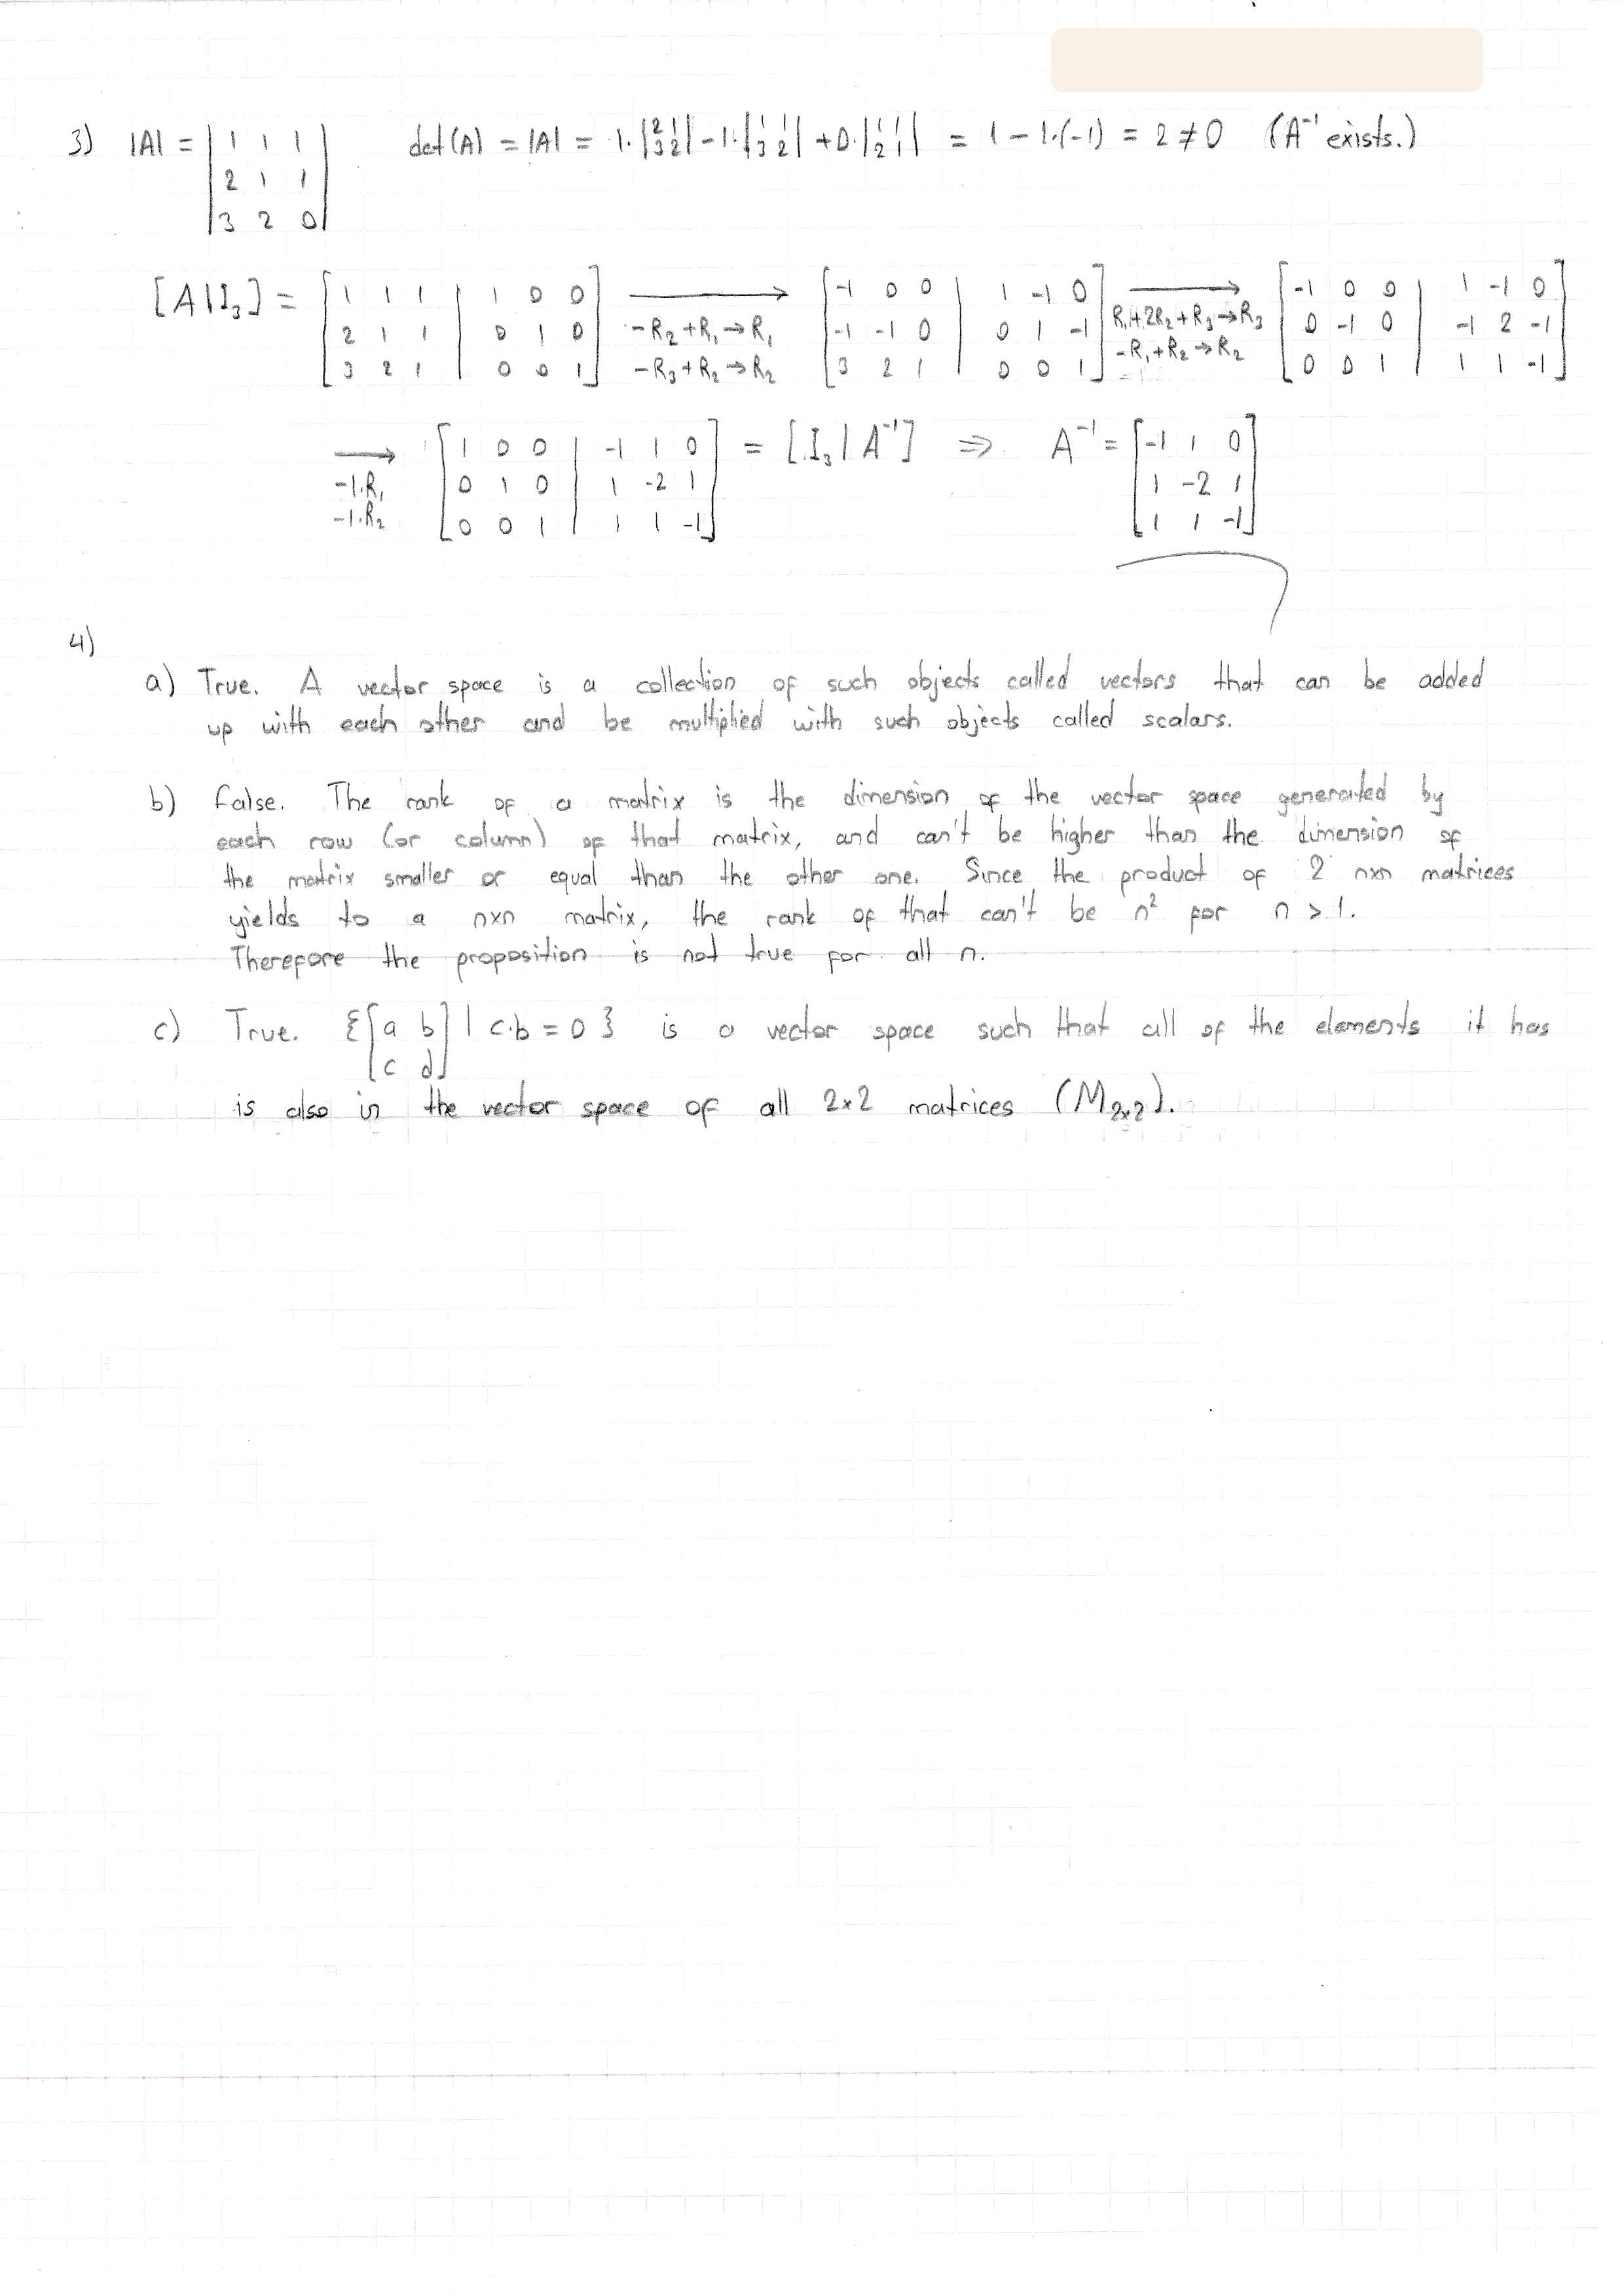 3) |A| = | 1 1 1 | det(A) = |A| = 1·|2 1| - 1·|1 1| + 0·|1 1| = 1 - 1·(-1) = 2 ≠ 0 (A⁻¹ exists.)
2 1 1 3 2 3 2 2 1
3 2 0
[A|I₃] = [ 1 1 1 | 1 0 0 ] → [ -1 0 0 | 1 -1 0 ] → [ -1 0 0 | 1 -1 0 ]
2 1 1 | 0 1 0 -R₂+R₁→R₁ -1 -1 0 | 0 1 -1 R₁+2R₂+R₃→R₃ 0 -1 0 | -1 2 -1
3 2 1 | 0 0 1 -R₃+R₂→R₂ 3 2 1 | 0 0 1 -R₁+R₂→R₂ 0 0 1 | 1 1 -1
→ [ 1 0 0 | -1 1 0 ] = [I₃|A⁻¹] ⇒ A⁻¹ = [ -1 1 0 ]
-1·R₁ 0 1 0 | 1 -2 1 1 -2 1
-1·R₂ 0 0 1 | 1 1 -1 1 1 -1
4)
a) True. A vector space is a collection of such objects called vectors that can be added
up with each other and be multiplied with such objects called scalars.
b) False. The rank of a matrix is the dimension of the vector space generated by
each row (or column) of that matrix, and can't be higher than the dimension of
the matrix smaller or equal than the other one. Since the product of 2 nxn matrices
yields to a nxn matrix, the rank of that can't be n² for n > 1.
Therefore the proposition is not true for all n.
c) True. {[a b] | c·b = 0 } is a vector space such that all of the elements it has
[c d]
is also in the vector space of all 2x2 matrices (M₂ₓ₂).